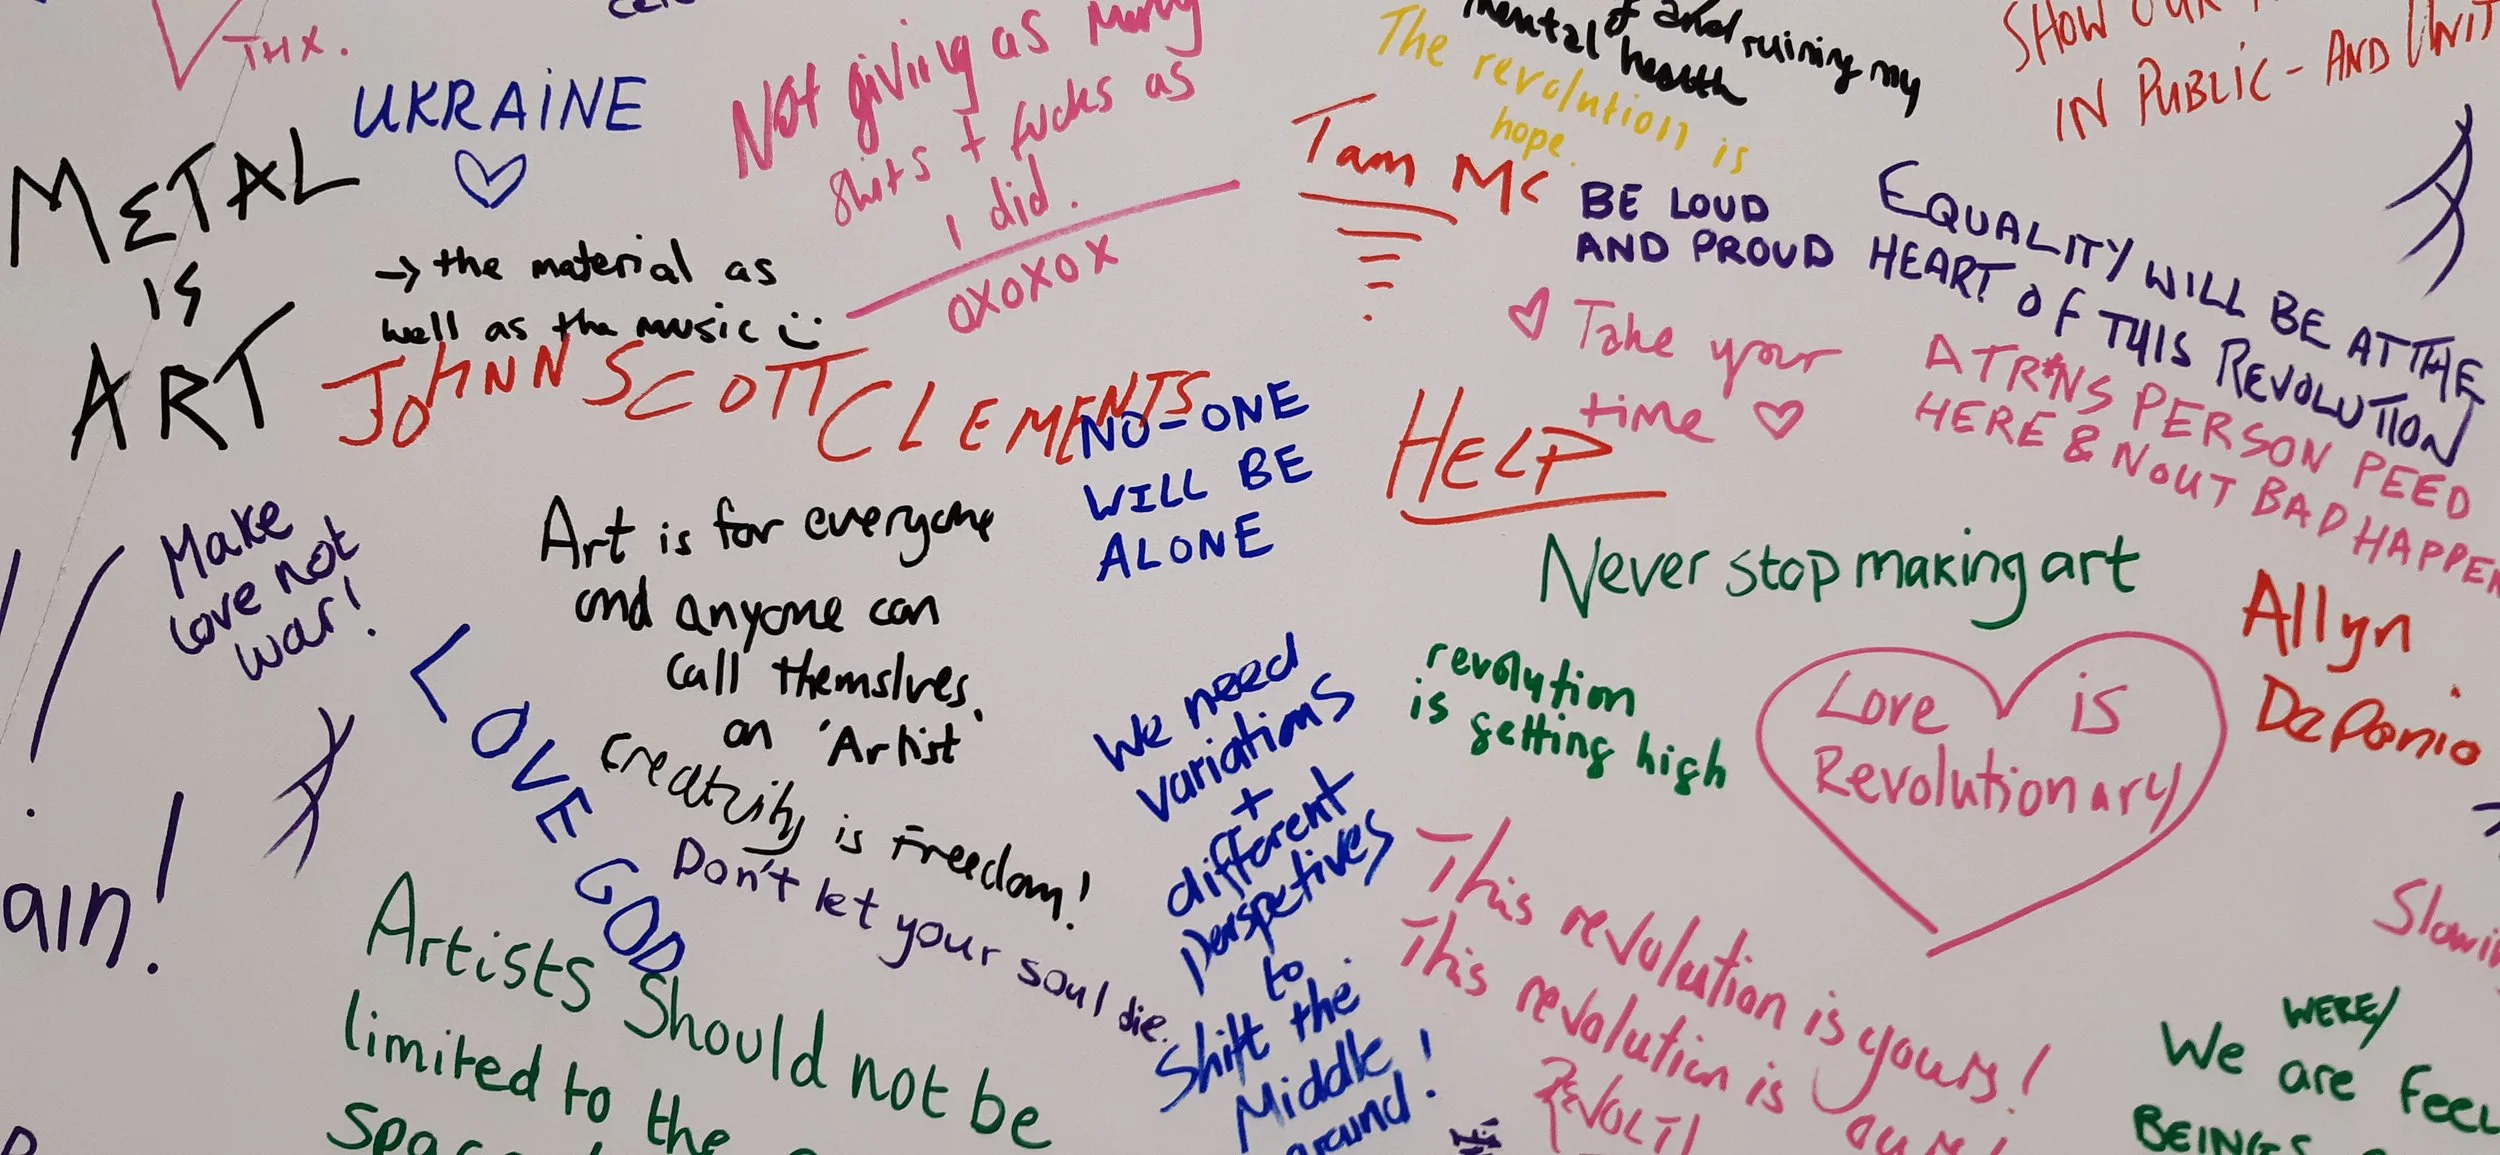 THX.
UKRAINE
METAL
IS
ART
→ the material as
well as the music
Not giving as many
shits + fucks as
I did.
OXOXOX
mental
health
and ruining my
The revolution is
hope.
Tam Mc
SHOW OUR
IN PUBLIC - AND UNIT
BE LOUD
AND PROUD
EQUALITY WILL BE AT THE
HEART OF THIS REVOLUTION
♡ Take your
time ♡
A TR*NS PERSON PEED
HERE & NOUT BAD HAPPEN
JOHNN SCOTT CLEMENTS
NO-ONE
WILL BE
ALONE
HELP
Make
love not
war!
Art is for everyone
and anyone can
call themslves
an 'Artist'
Never stop making art
Allyn
DePonio
LOVE GOD
Creativity is Freedom!
Don't let your soul die.
We need
variations
+
different
perspetives
to
Shift the
Middle
ground!
revolution
is getting high
Love is
Revolutionary
ain!
Artists Should not be
limited to the
This revolution is yours!
This revolution is ours!
REVOLT!
Slowin
WERE/
We are feel
BEINGS